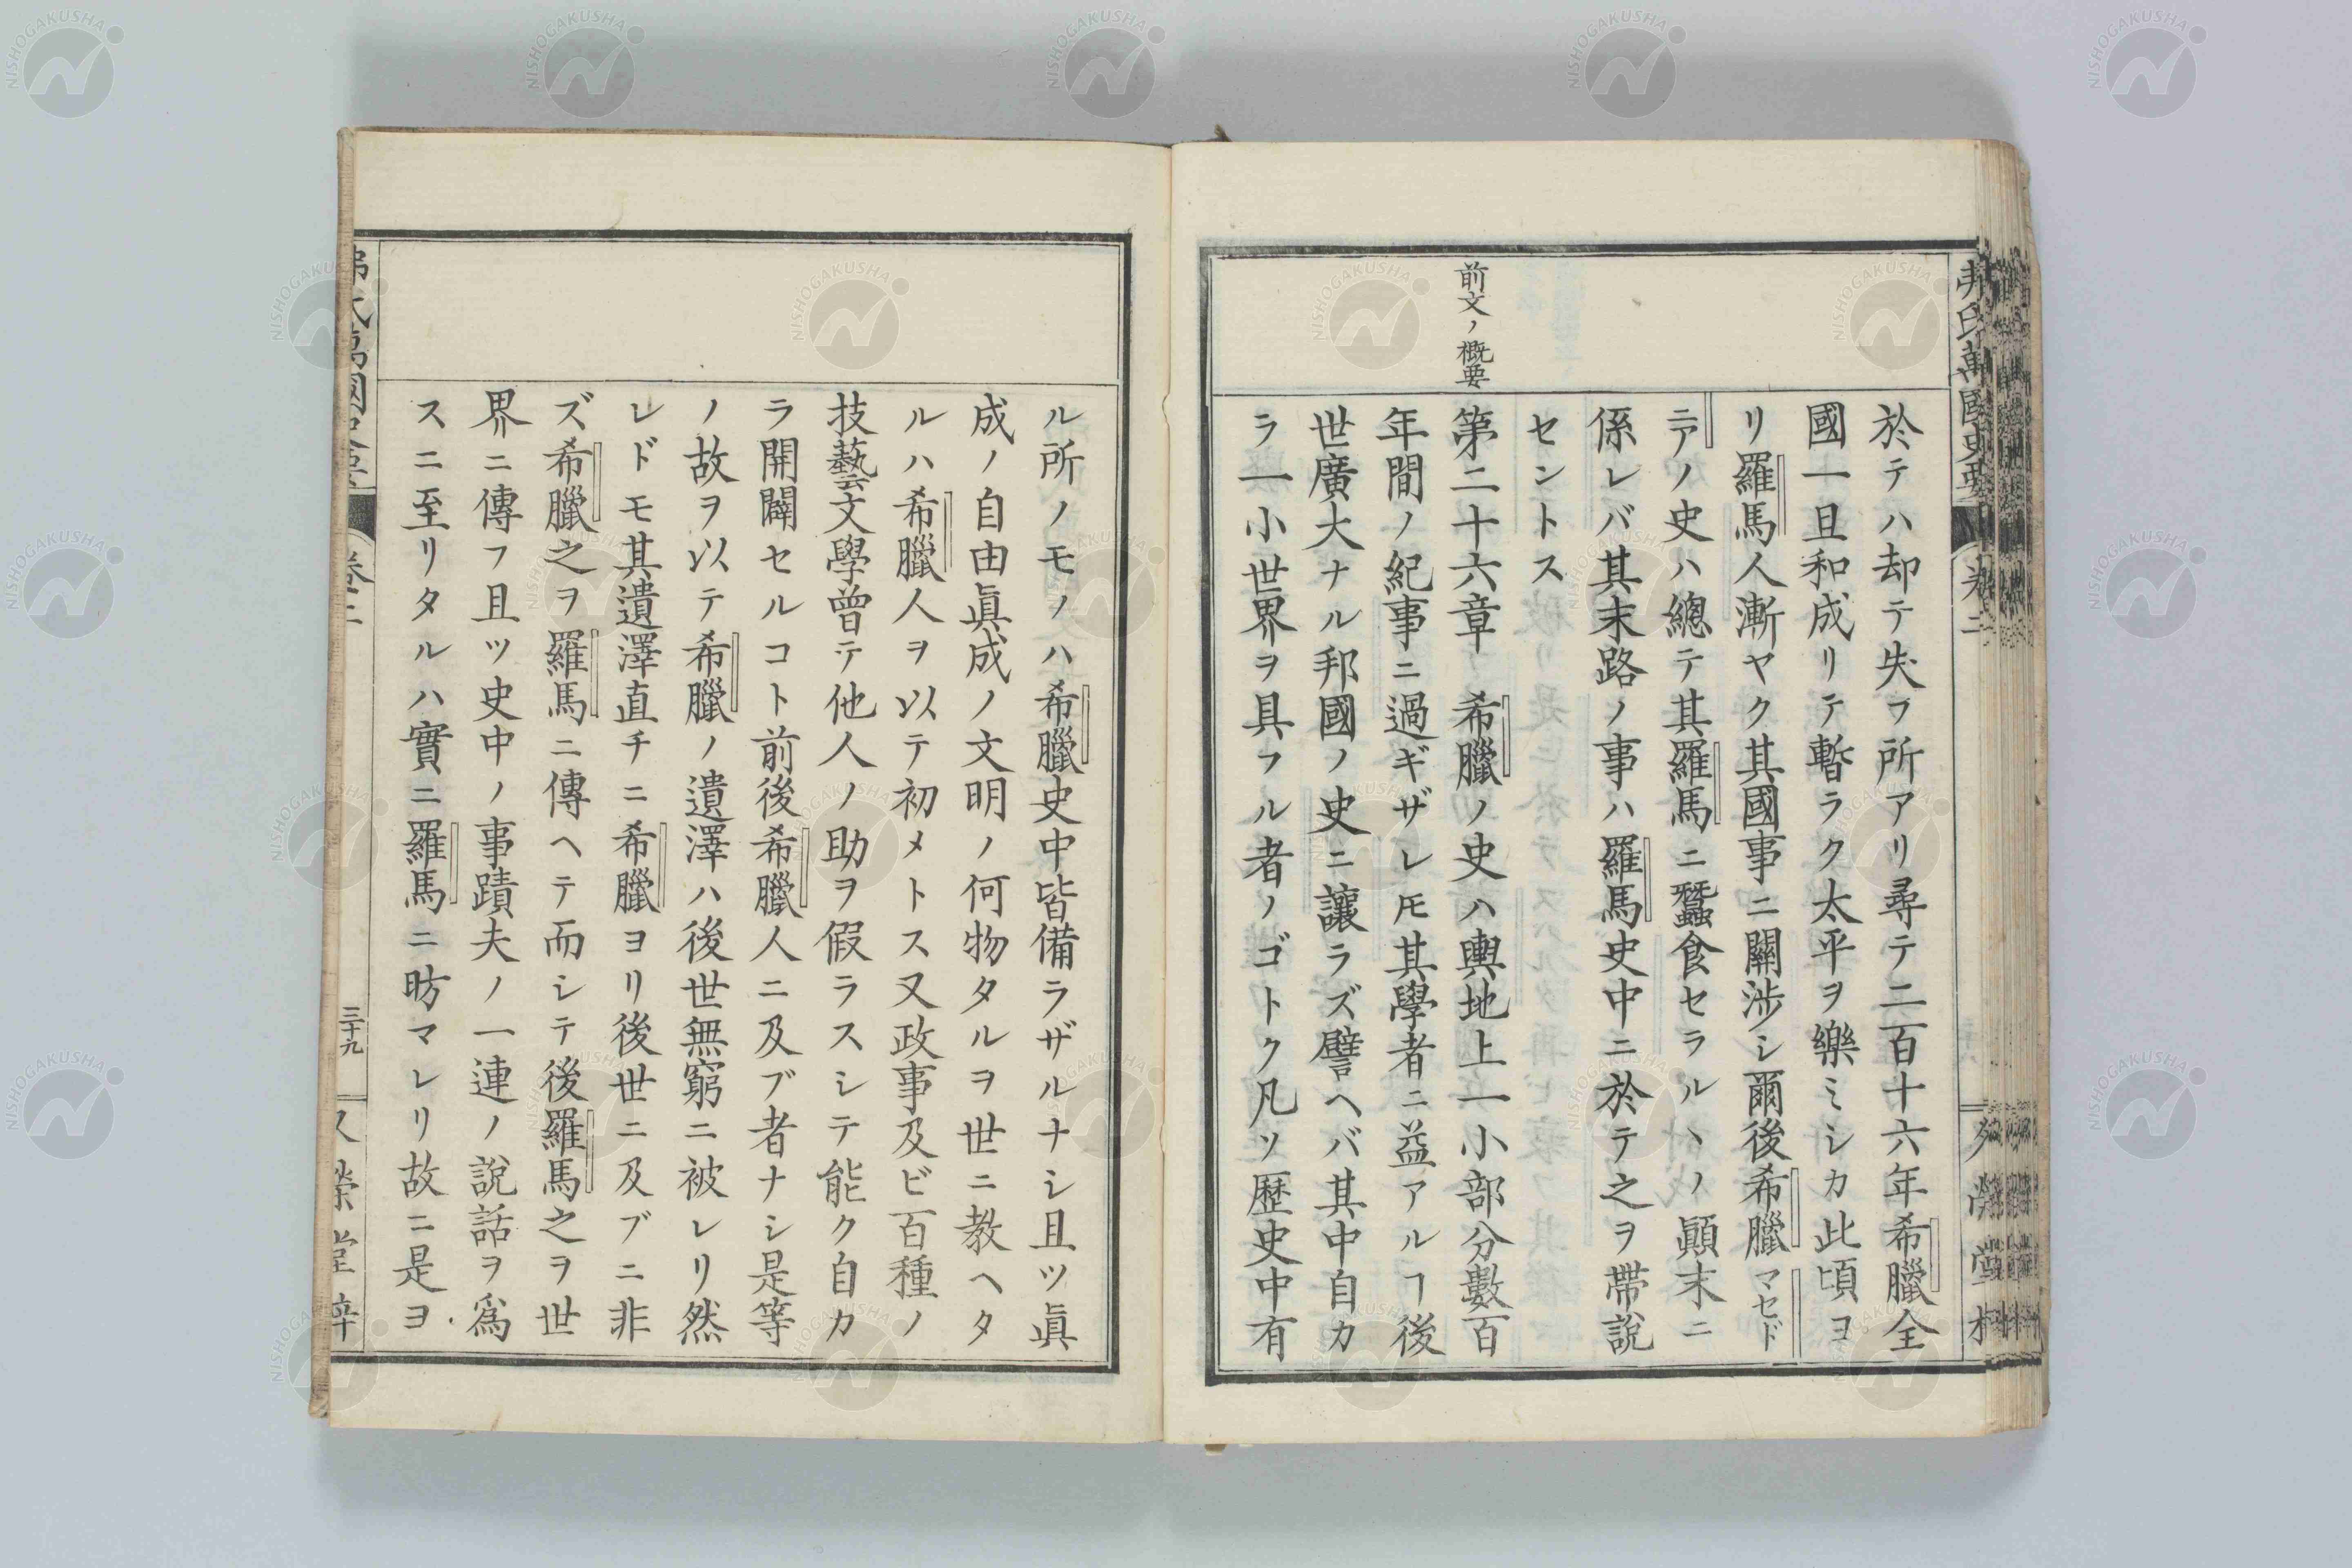 前文ノ概要
於テハ却テ失フ所アリ尋テ二百十六年希臘全
國一旦和成リテ暫ラク太平ヲ樂ミシカ此頃ヨ
リ羅馬人漸ヤク其國事ニ關渉シ爾後希臘マセド
ニアノ史ハ總テ其羅馬ニ蠶食セラルヽノ顚末ニ
係レバ其末路ノ事ハ羅馬史中ニ於テ之ヲ帶說
セントス
第二十六章 希臘ノ史ハ輿地上一小部分數百
年間ノ紀事ニ過ギザレ𪜈其學者ニ益アルヿ後
世廣大ナル邦國ノ史ニ讓ラズ譬ヘバ其中自カ
ラ一小世界ヲ具フル者ノゴトク凡ソ歷史中有
ル所ノモノハ希臘史中皆備ラザルナシ且ツ眞
成ノ自由眞成ノ文明ノ何物タルヲ世ニ教ヘタ
ルハ希臘人ヲ以テ初メトス又政事及ビ百種ノ
技藝文學曾テ他人ノ助ヲ假ラスシテ能ク自カ
ラ開闢セルコト前後希臘人ニ及ブ者ナシ是等
ノ故ヲ以テ希臘ノ遺澤ハ後世無窮ニ被レリ然
レドモ其遺澤直チニ希臘ヨリ後世ニ及ブニ非
ズ希臘之ヲ羅馬ニ傳ヘテ而シテ後羅馬之ヲ世
界ニ傳フ且ツ史中ノ事蹟夫ノ一連ノ說話ヲ爲
スニ至リタルハ實ニ羅馬ニ昉マレリ故ニ是ヨ
卷二
三十九
NISHOGAKUSHA